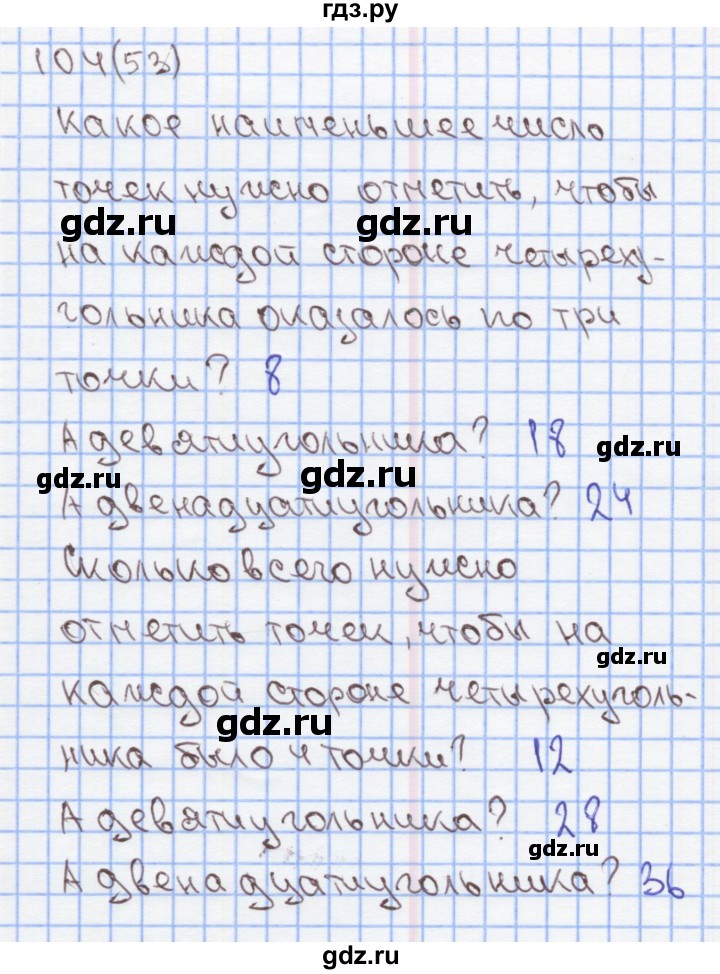 гдз.ру
104(53)
Какое наименьшее число
точек нужно отметить, чтобы
gdz.ru gdz.ru
на каждой стороне четыреху-
гольника оказалось по три
точки? 8
А девятиугольника? 18
gdz.ru
gdz.ru gdz.ru
А двенадцатиугольника? 24
Сколько всего нужно
отметить точек, чтобы на
gdz.ru
каждой стороне четырехуголь-
gdz.ru
ника было 4 точки? 12
А девятиугольника? 28
gdz.ru
А двенадцатиугольника? 36
gdz.ru